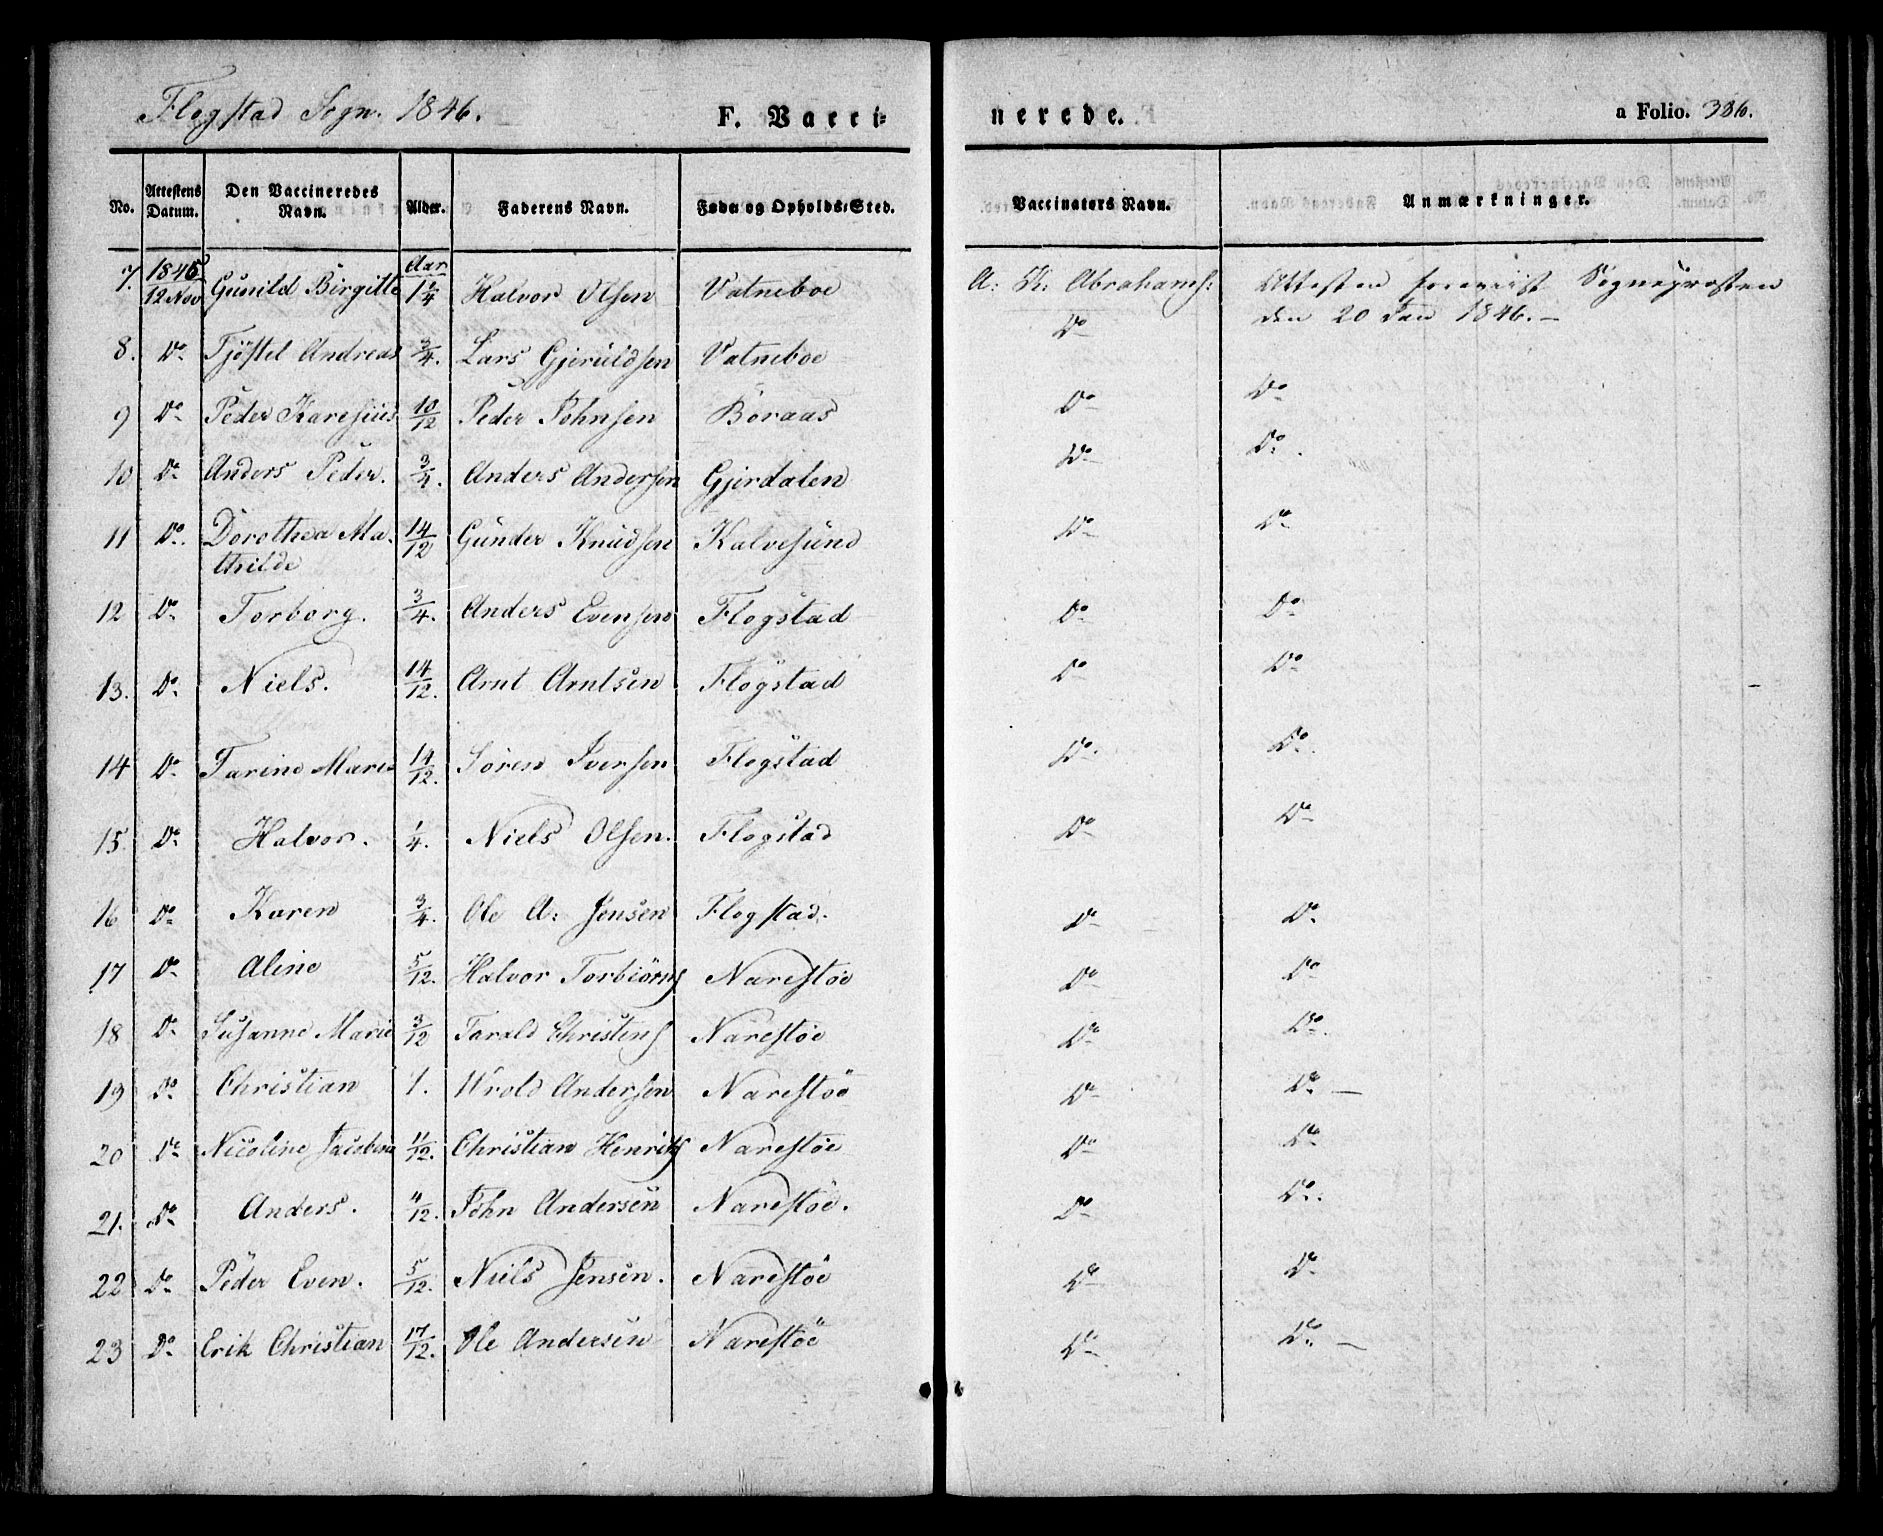 Flogstad Sogn. 1846.
F. Vacci=
nerede.
a Folio. 386.
No. | Attestens Datum. | Den Vaccineredes Navn. | Alder. | Faderens Navn. | Føde og Opholds-Sted. | Vaccinators Navn. | Anmærkninger.
7. | 1845 12 Nov | Gunild Birgitte | Aar 1 1/4 | Halvor Olsen | Vatneboe | A: K: Abrahams: | Attesten foreviist Sogneprosten
den 20 Jan 1846. –
8. | Do | Tjöstel Andreas | 3/4. | Lars Gjeruldsen | Vatneboe | Do
9 | Do | Peder Karesius | 10/12 | Peder Johnsen | Boraas | Do | Do
10 | Do | Anders Peder. | 3/4. | Anders Andersen | Gjerdalen | Do | Do.
11 | Do. | Dorothea Ma- | 14/12 | Gunder Knudsen | Kalvesund | Do | Do
thilde
12 | Do | Torborg. | 3/4. | Anders Evensen | Flogstad | Do | Do
13. | Do | Niels. | 14/12. | Arnt Arntsen | Flogstad | Do | Do
14 | Do | Tarine Marie | 14/12. | Sören Iversen | Flogstad | Do. | Do.
15. | Do | Halvor. | 1/4. | Niels Olsen. | Flogstad | Do | Do
16 | Do | Karen | 3/4. | Ole A: Jensen | Flogstad. | Do | Do
17 | Do | Aline | 5/12. | Halvor Torbiörns | Narestöe | Do | Do
18 | Do | Susanne Marie | 3/12 | Tarald Christens | Narestöe | Do | Do.
19 | Do | Christian | 1. | Wrold Andersen | Narestöe | Do | Do –
20 | Do | Nicoline Jacobine | 11/12. | Christian Henriks | Narestöe | Do | Do
21. | Do | Anders. | 4/12. | John Andersen | Narestöe. | Do | Do.
22 | Do | Peder Even. | 5/12. | Niels Jensen. | Narestöe | Do | Do
23 | Do | Erik Christian | 17/12. | Ole Andersen | Narestöe | Do | Do. –